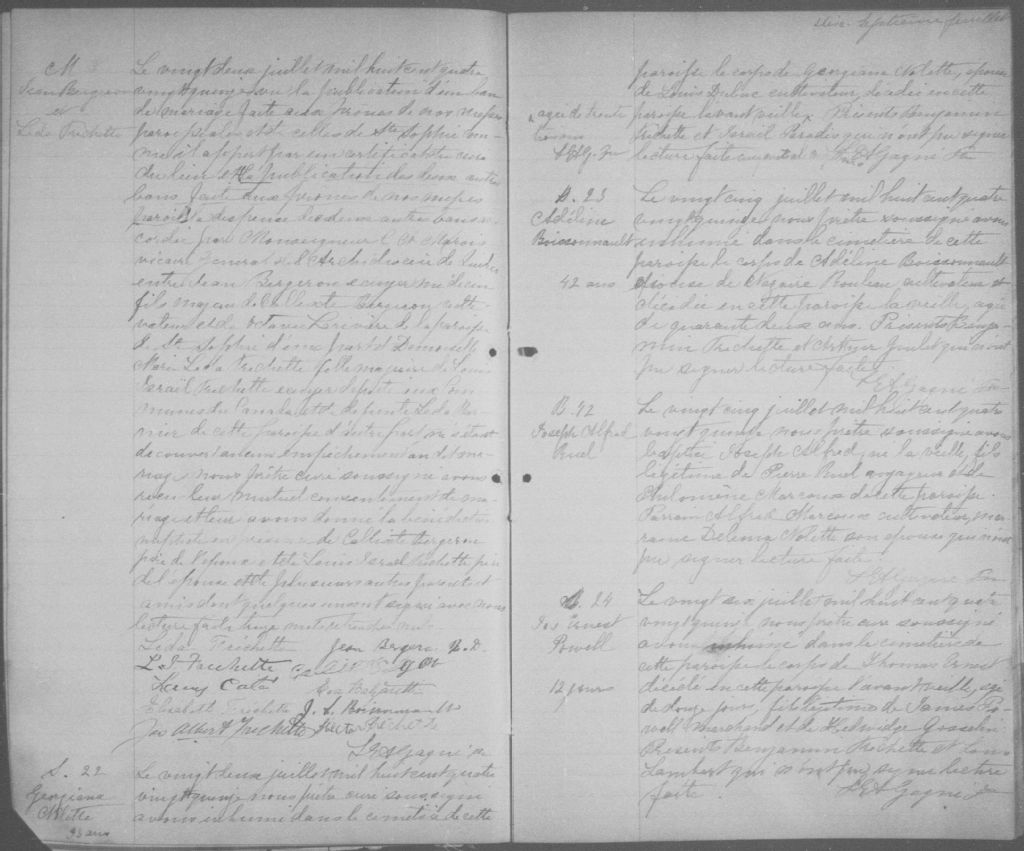 M
Jean Bergeron
et
Léda Frechette
Le vingt deux juillet mil huit cent quatre
vingt quinze vu la publication d'un ban
de mariage faite aux prônes de nos messes
paroissiales et de celles de Ste Sophie com
me il appert par un certificat du curé
du lieu et la publication des deux autres
bans faite aux prônes de nos messes
la dispense des deux autres bans ac
cordée par Monseigneur C. A. Marois
vicaire général de l'Archidiocèse de Québec
entre Jean Bergeron écuyer médecin
fils majeur de Calixte Bergeron culti
vateur et de Octavie Larivière de la paroisse
de Ste Sophie d'une part et Demoiselle
Marie Léda Frechette fille majeure de Louis
Israël Frechette écuyer député aux Com
munes du Canada et de défunte Léda
de cette paroisse d'autre part ne s'étant
découvert aucun empêchement au dit ma-
riage nous prêtre curé soussigné avons
reçu leur mutuel consentement de ma-
riage et leur avons donné la bénédiction
nuptiale en présence de Calixte Bergeron
père de l'époux et de Louis Israël Frechette père
de l'épouse et de plusieurs autres parents et
amis dont quelques uns ont signé avec nous
lecture faite
Léda Frechette Jean Bergeron M. D.
L. I. Frechette
Henry
Elisabeth Frechette J. A. Boissonnault
Jos Albert Frechette Frechette
L E A Gagné Ptre
S. 22
Georgiana
Nolette
33 ans
Le vingt deux juillet mil huit cent quatre
vingt quinze nous prêtre curé soussigné
avons inhumé dans le cimetière de cette
septième feuillet
paroisse le corps de Georgiana Nolette, épouse
de Louis Dubuc cultivateur, décédée en cette
paroisse la avant veille, Présents Benjamin
Frechette et Israël Paradis qui n'ont pu signer
lecture faite L E A Gagné Ptre
agée de trente
trois ans
L E A G. Ptre
S. 23
Adéline
Boissonnault
42 ans
Le vingt cinq juillet mil huit cent quatre
vingt quinze nous prêtre soussigné avons
inhumé dans le cimetière de cette
paroisse le corps de Adéline Boissonnault
épouse de Nazaire Rouleau cultivateur et
décédée en cette paroisse la veille, agée
de quarante deux ans. Présents Benja
min Frechette et Arthur Goulet qui n'ont
pu signer lecture faite
L E A Gagné Ptre
B. 42
Joseph Alfred
Ruel
Le vingt cinq juillet mil huit cent quatre
vingt quinze nous prêtre soussigné avons
baptisé Joseph Alfred, né la veille, fils
légitime de Pierre Ruel voyageur et de
Philomène Marcoux de cette paroisse.
Parrain Alfred Marcoux cultivateur, mar
raine Delima Nolette son épouse qui n'ont
pu signer lecture faite
L E A Gagné Ptre
S. 24
Jas Ernest
Powell
12 jours
Le vingt six juillet mil huit cent quatre
vingt quinze nous prêtre curé soussigné
avons inhumé dans le cimetière de
cette paroisse le corps de Thomas Ernest
décédé en cette paroisse l'avant veille, agé
de douze jours, fils légitime de James Po
well marchand et de Hedwidge Gosselin
Présents Benjamin Frechette et Louis
Lambert qui n'ont pu signer lecture
faite. L E A Gagné Ptre